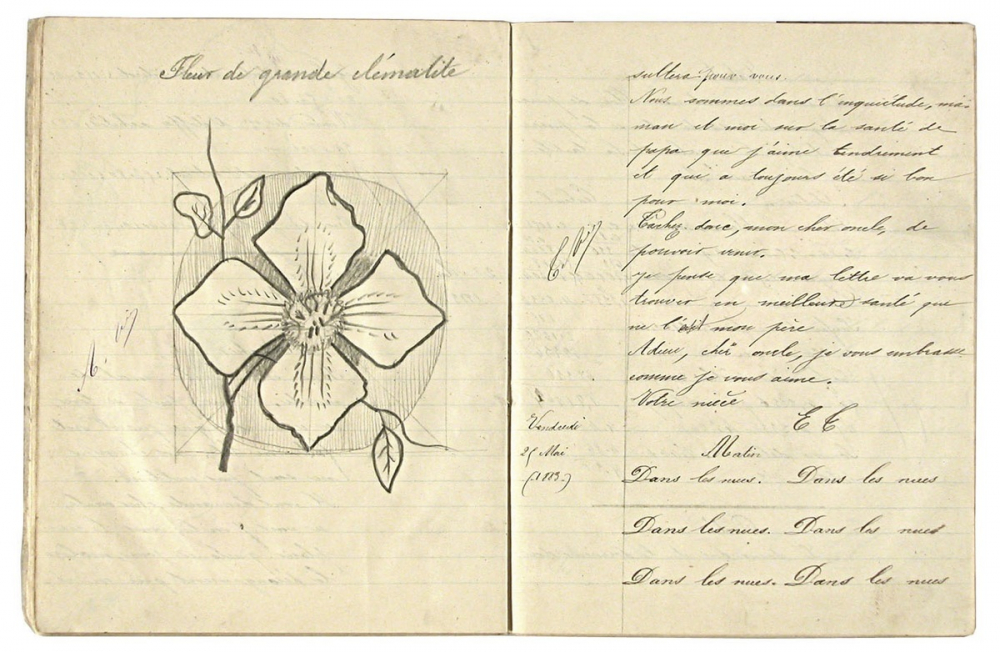 Fleur de grande clématite
sultera pour vous.
Nous sommes dans l'inquiétude, ma-
man et moi sur la santé de
papa que j'aime tendrement
et qui a toujours été si bon
pour moi.
Tâchez donc, mon cher oncle, de
pouvoir venir.
je pense que ma lettre va vous
trouver en meilleure santé que
ne l'est mon père
Adieu, cher oncle, je vous embrasse
comme je vous aime.
Votre nièce
E C
Vendredi
25 Mai
(1883.)
Matin
Dans les nues. Dans les nues
Dans les nues. Dans les nues
Dans les nues. Dans les nues